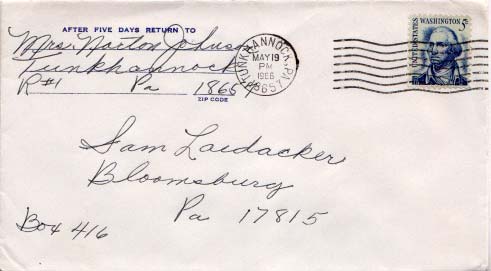 AFTER FIVE DAYS RETURN TO
Mrs. Norton Johns
Tunkhannock
R#1 Pa 18657
ZIP CODE
TUNKHANNOCK, PA
MAY 19
PM
1966
18657
UNITED STATES
WASHINGTON 5¢
Sam Laidacker
Bloomsburg
Pa 17815
Box 416